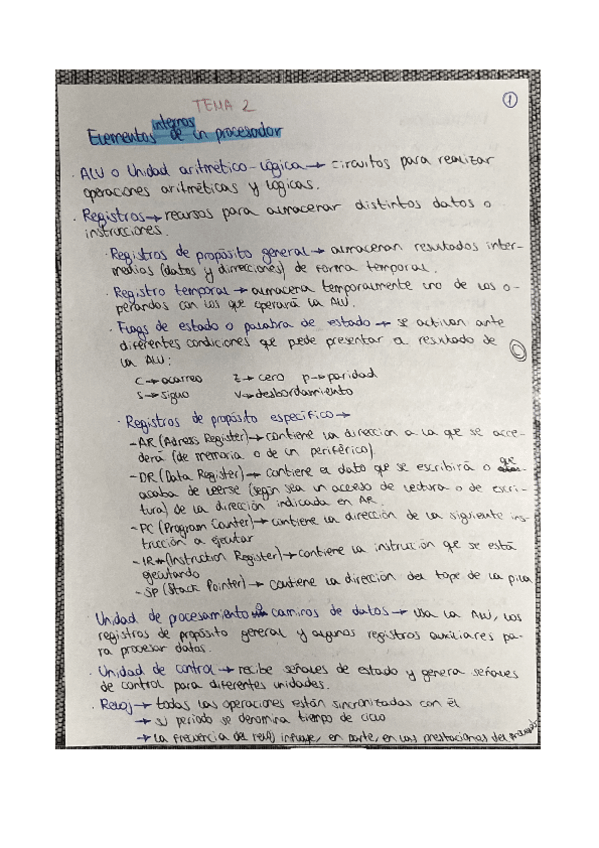 TEMA 2
1
Elementos internos de un procesador
· ALU o Unidad aritmético-lógica → circuitos para realizar
operaciones aritméticas y lógicas.
· Registros → recursos para almacenar distintos datos o
instrucciones.
· Registros de propósito general → almacenan resultados inter-
medios (datos y direcciones) de forma temporal.
· Registro temporal → almacena temporalmente uno de los o-
perandos con los que operará la ALU.
· Flags de estado o palabra de estado → se activan ante
diferentes condiciones que puede presentar el resultado de
la ALU:
C → acarreo Z → cero P → paridad
S → signo V → desbordamiento
· Registros de propósito específico →
- AR (Adress Register) → contiene la dirección a la que se acce-
derá (de memoria o de un periférico).
- DR (Data Register) → contiene el dato que se escribirá o que
acaba de leerse (según sea un acceso de lectura o de escri-
tura) de la dirección indicada en AR.
- PC (Program Counter) → contiene la dirección de la siguiente ins-
trucción a ejecutar
- IR (Instruction Register) → contiene la instrucción que se está
ejecutando
- SP (Stack Pointer) → contiene la dirección del tope de la pila
· Unidad de procesamiento o caminos de datos → usa la ALU, los
registros de propósito general y algunos registros auxiliares pa-
ra procesar datos.
· Unidad de control → recibe señales de estado y genera señales
de control para diferentes unidades.
· Reloj → todas las operaciones están sincronizadas con él
→ su periodo se denomina tiempo de ciclo
→ La frecuencia del reloj influye, en parte, en las prestaciones del procesador